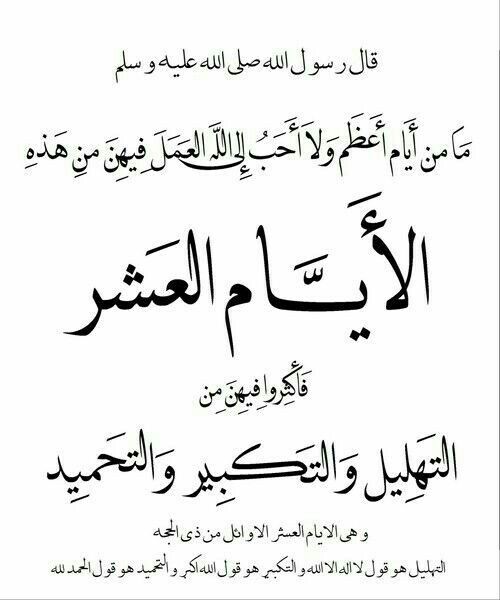 قال رسول الله صلى الله عليه و سلم
مَا من أَيَام أَعَظَم وَلاَ أَحَبُ إِلى اللَّه العَمَلَ فِيهِنَ مِنِ هَذِهِ
الأَيَّام العَشر
فَأَكثِروا فِيهِنَ مِن
التَهلِيل وَالتَكبِير وَالتحَمِيد
و هى الايام العشر الاوائل من ذى الحجه
التهليل هو قول لا اله الا الله و التكبير هو قول الله اكبر و التحميد هو قول الحمد لله